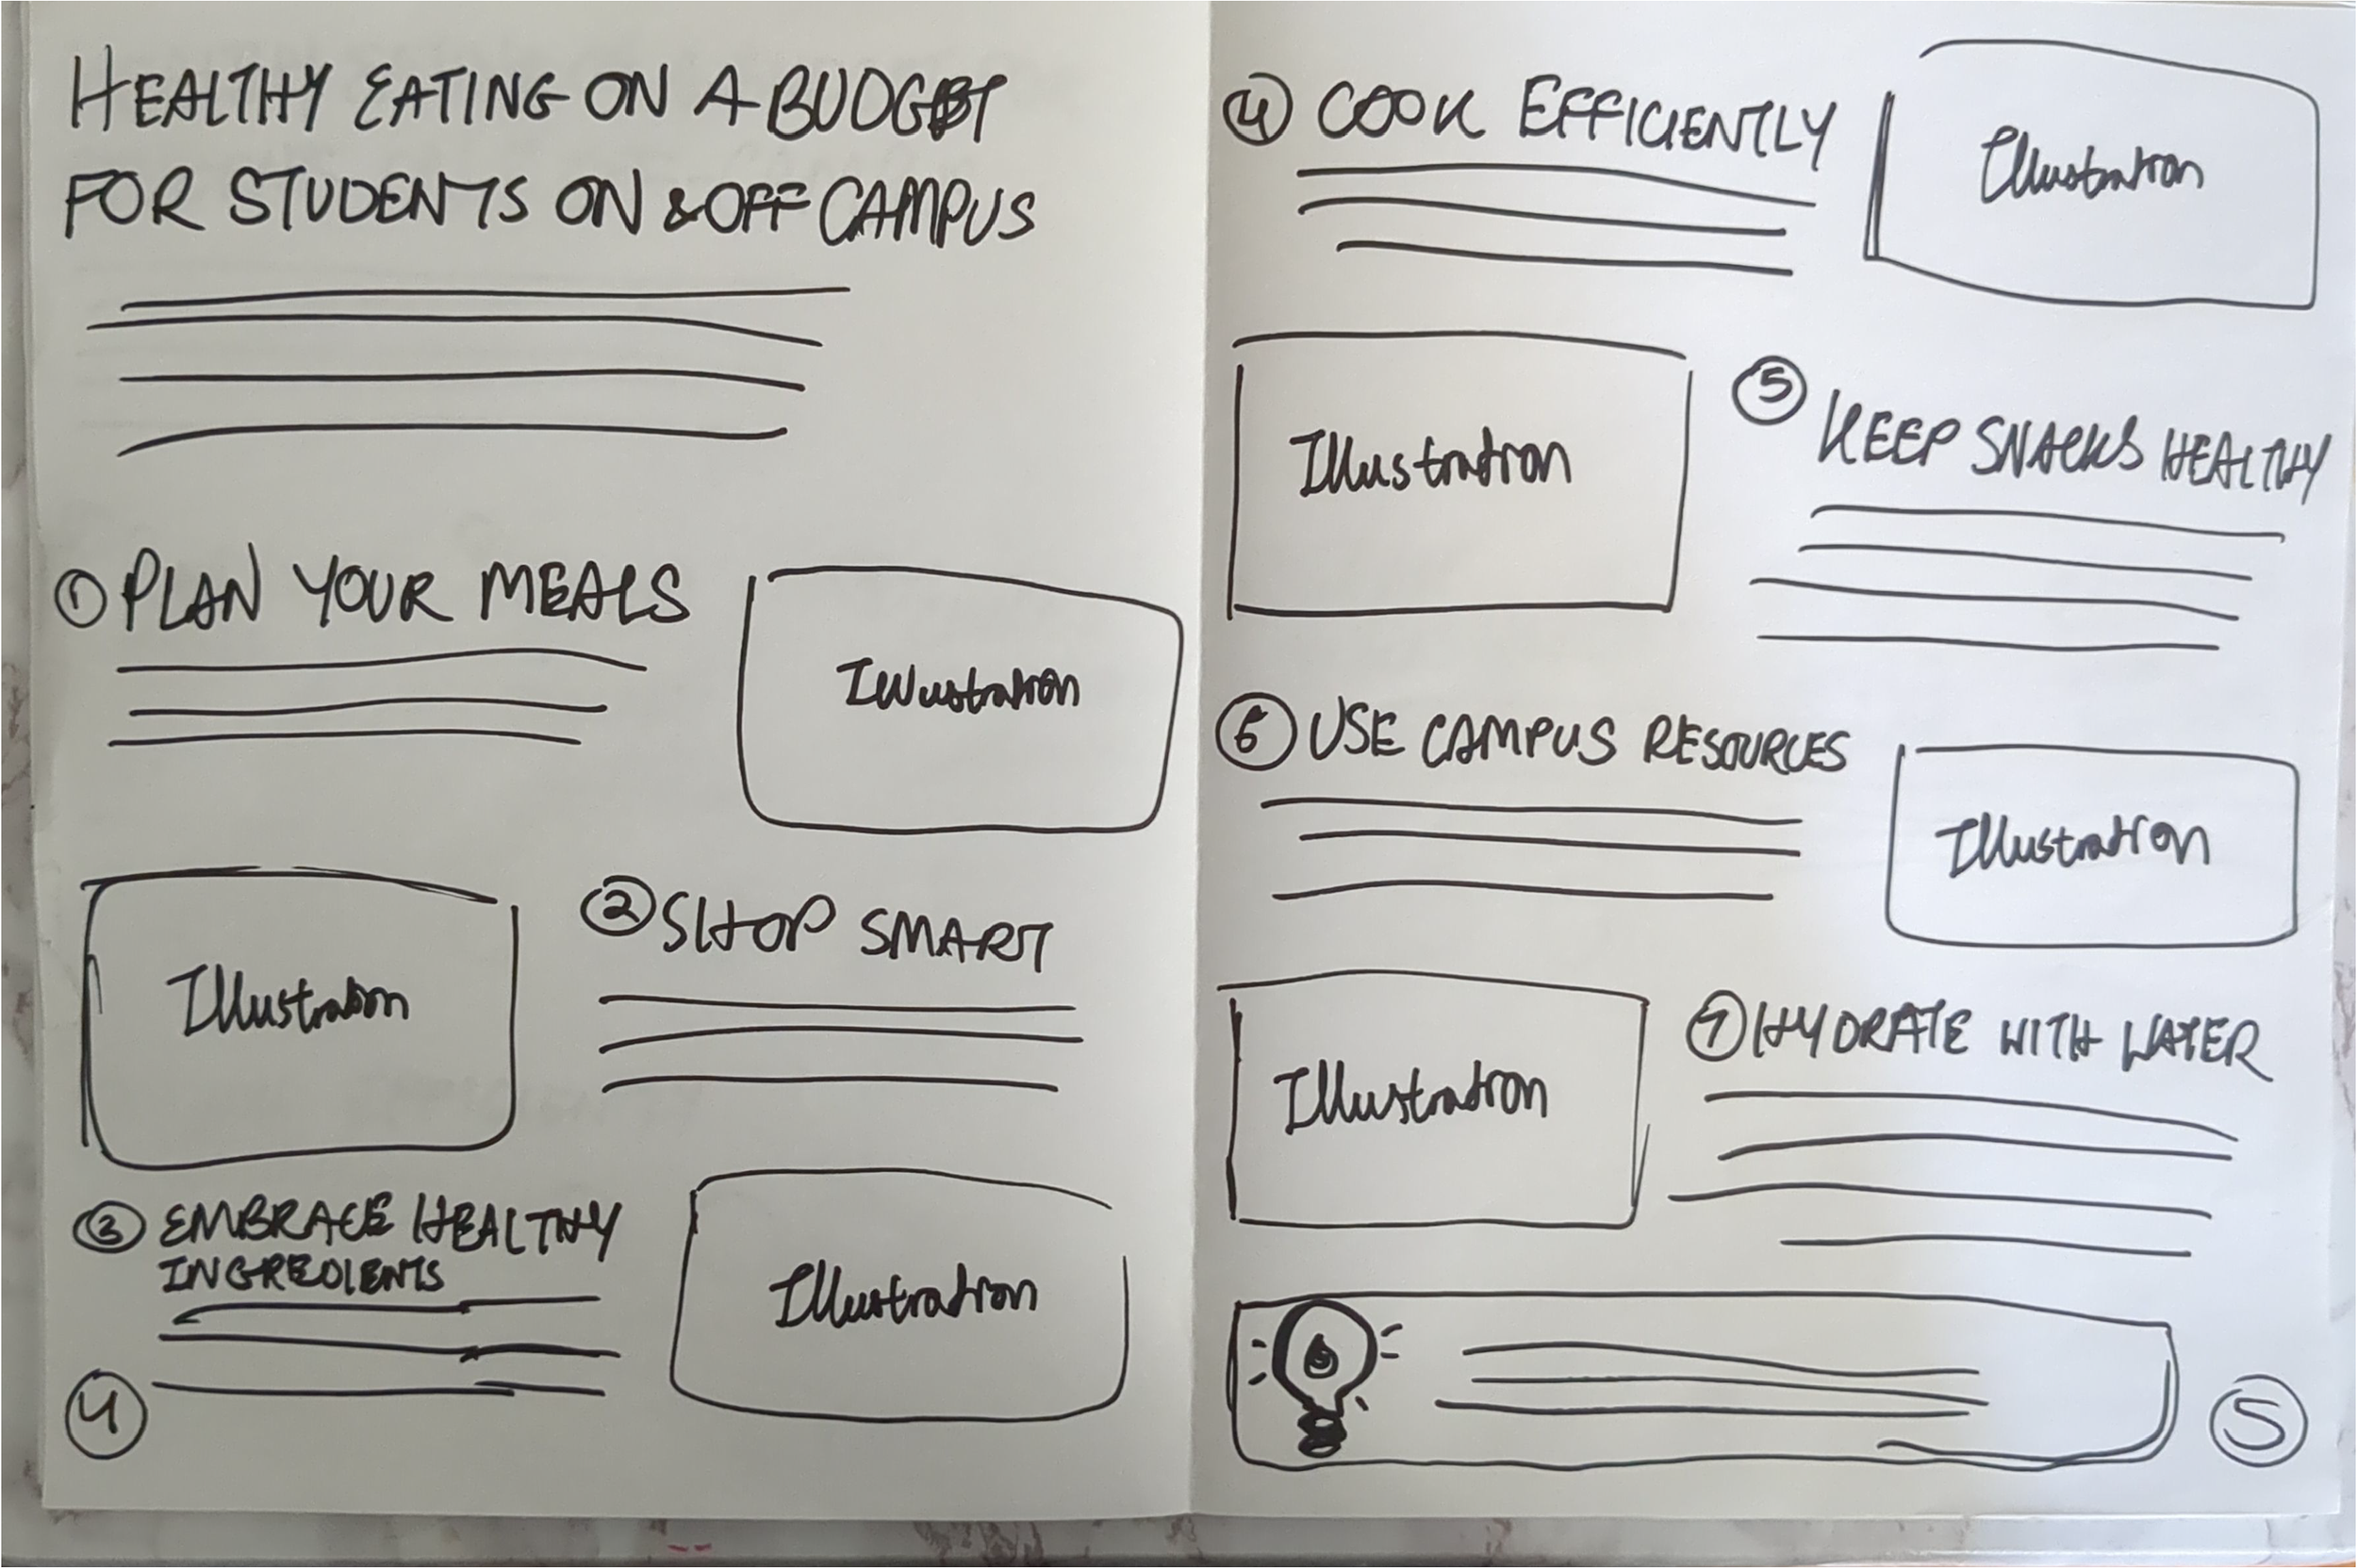 HEALTHY EATING ON A BUDGET
FOR STUDENTS ON & OFF CAMPUS
① PLAN YOUR MEALS
Illustration
Illustration
② SHOP SMART
③ EMBRACE HEALTHY
INGREDIENTS
Illustration
4
④ COOK EFFICIENTLY
Illustration
Illustration
⑤ KEEP SNACKS HEALTHY
⑥ USE CAMPUS RESOURCES
Illustration
Illustration
⑦ HYDRATE WITH WATER
5